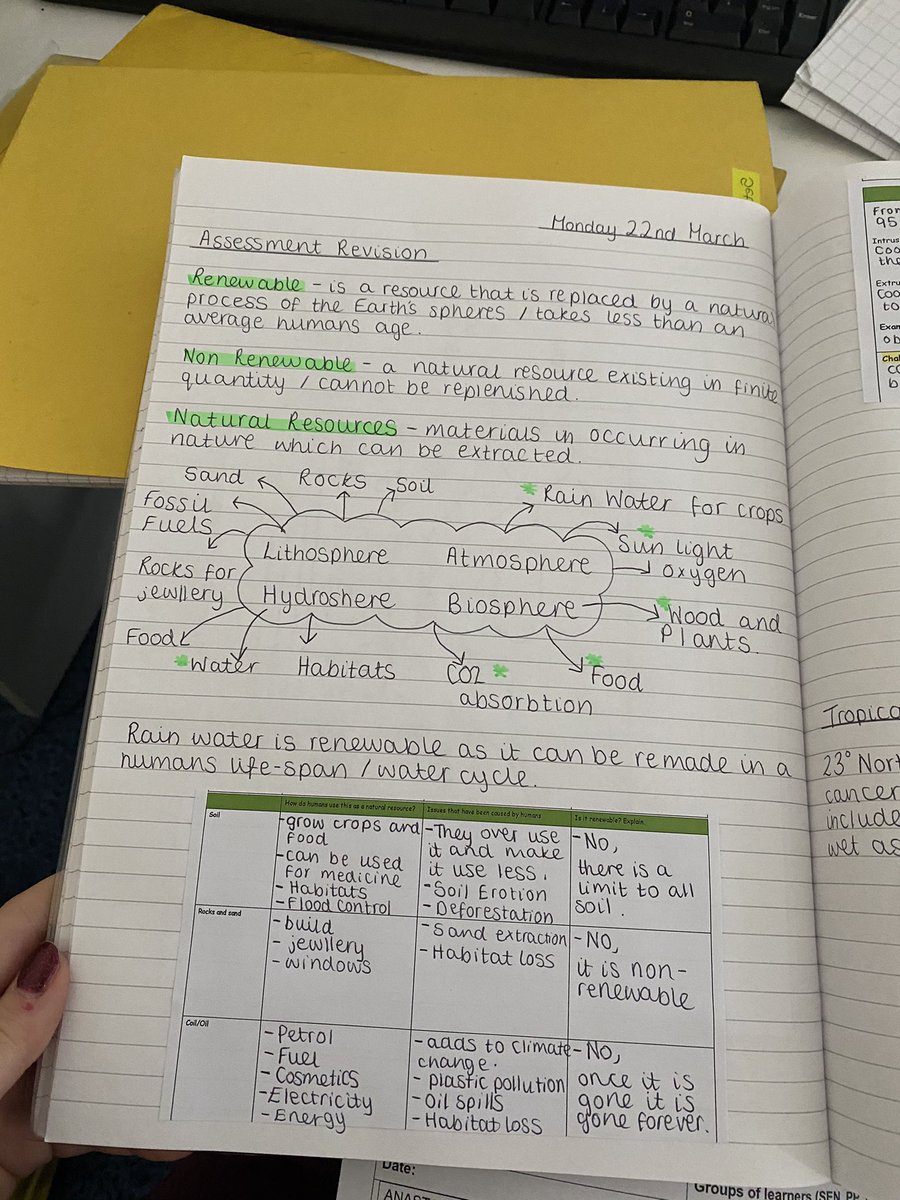 Monday 22nd March
Assessment Revision
Renewable - is a resource that is replaced by a natural
process of the Earth's spheres / takes less than an
average humans age.
Non Renewable - a natural resource existing in finite
quantity / cannot be replenished.
Natural Resources - materials in occurring in
nature which can be extracted.
Sand Rocks Soil
Rain Water for crops
Fossil
Fuels
Sun light
oxygen
Lithosphere Atmosphere
Rocks for
jewllery
Hydroshere Biosphere
Wood and
Plants.
Food
Water Habitats CO2
absorbtion
Food
Rain water is renewable as it can be remade in a
humans life-span / water cycle.
How do humans use this as a natural resource? Issues that have been caused by humans Is it renewable? Explain.
Soil
- grow crops and
food
- can be used
for medicine
- Habitats
- Flood control
- They over use
it and make
it use less.
- Soil Erotion
- Deforestation
- No,
there is a
limit to all
soil.
Rocks and sand
- build
- jewllery
- windows
- Sand extraction
- Habitat loss
- No,
it is non-
renewable
Coil/Oil
- Petrol
- Fuel
- Cosmetics
- Electricity
- Energy
- adds to climate
change.
- plastic pollution
- Oil spills
- Habitat loss
- No,
once it is
gone it is
gone forever.
From
95
Intrus
Coo
the
Extru
Coo
to
Exam
ob
Chal
co
b
Tropica
23° Nort
cancer
include
wet as
Date:
ANAST
Groups of learners (SEN, PK